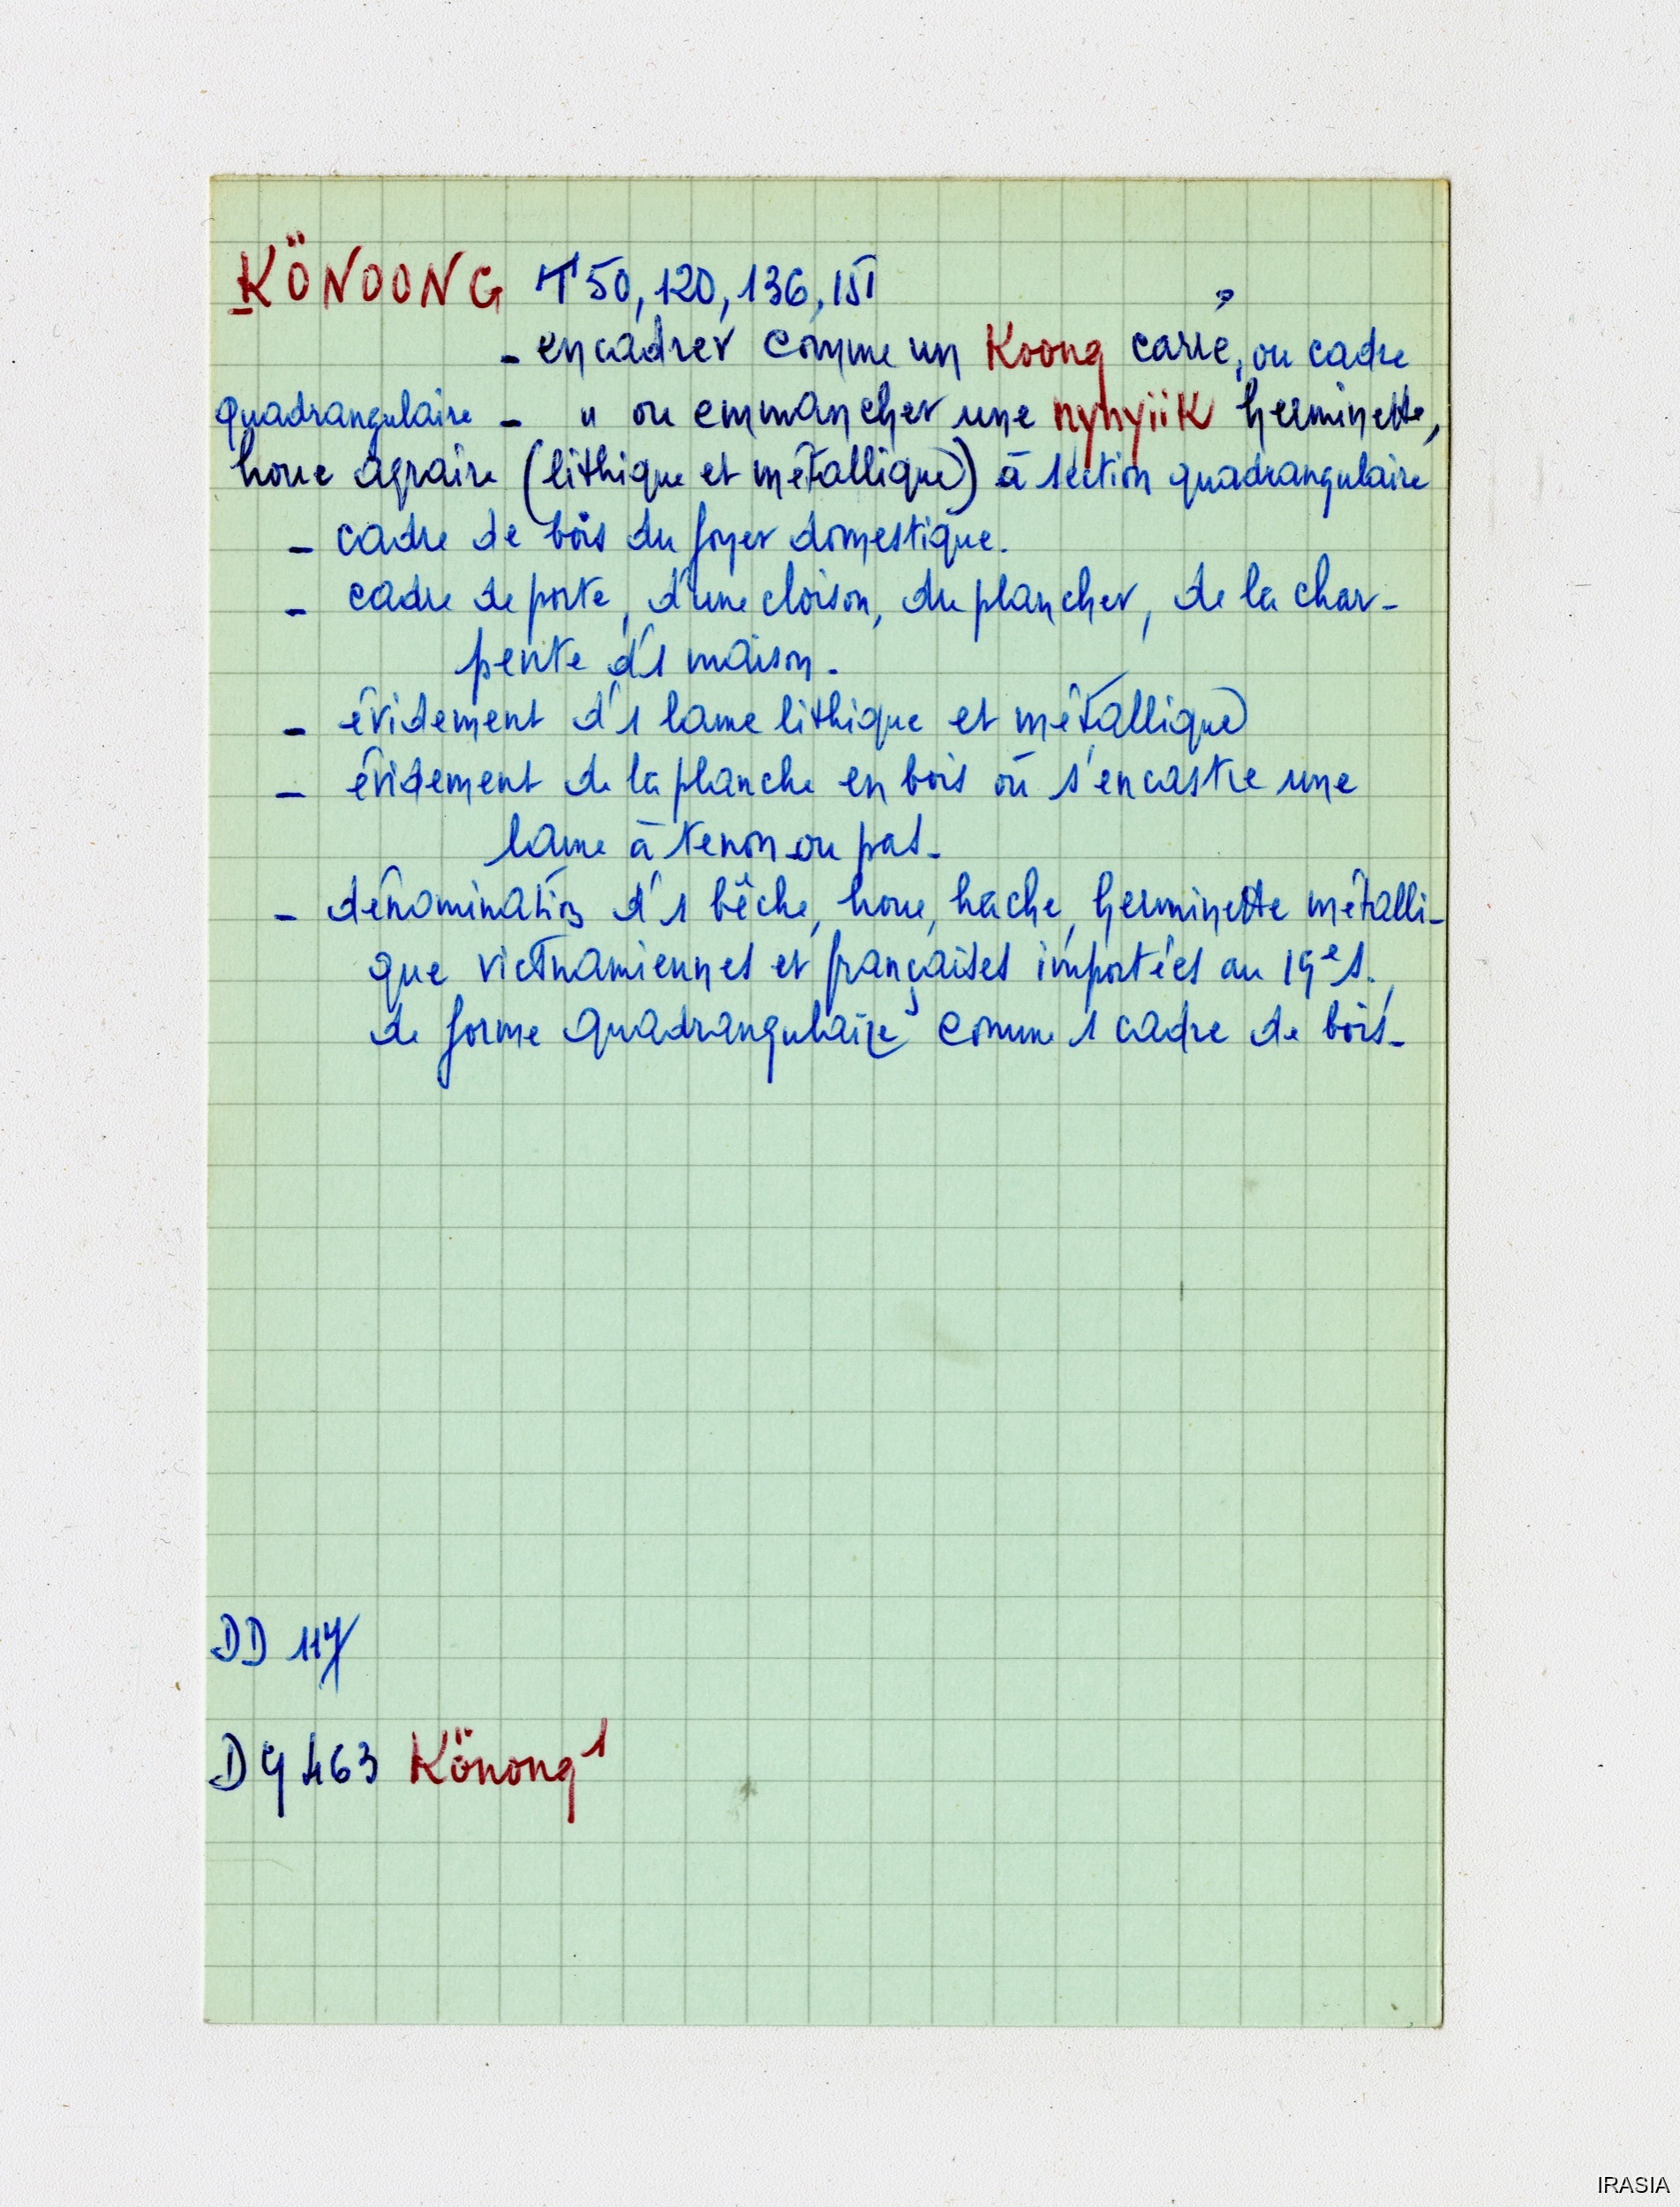 KÖNOONG T50, 120, 136, 151
- encadrer comme un Koong carré, ou cadre
quadrangulaire - " ou emmancher une nyhyiik herminette,
houe agraire (lithique et métallique) à section quadrangulaire
- cadre de bois du foyer domestique.
- cadre de porte, d'une cloison, du plancher, de la char-
pente d'1 maison.
- évidement d'1 lame lithique et métallique)
- évidement de la planche en bois où s'encastre une
lame à tenon ou pas.
- dénomination d'1 bêche, houe, hache, herminette métalli-
que vietnamiennes et françaises importées au 19e s.
de forme quadrangulaire comme 1 cadre de bois.
DD 117
463 Könong 1
IRASIA